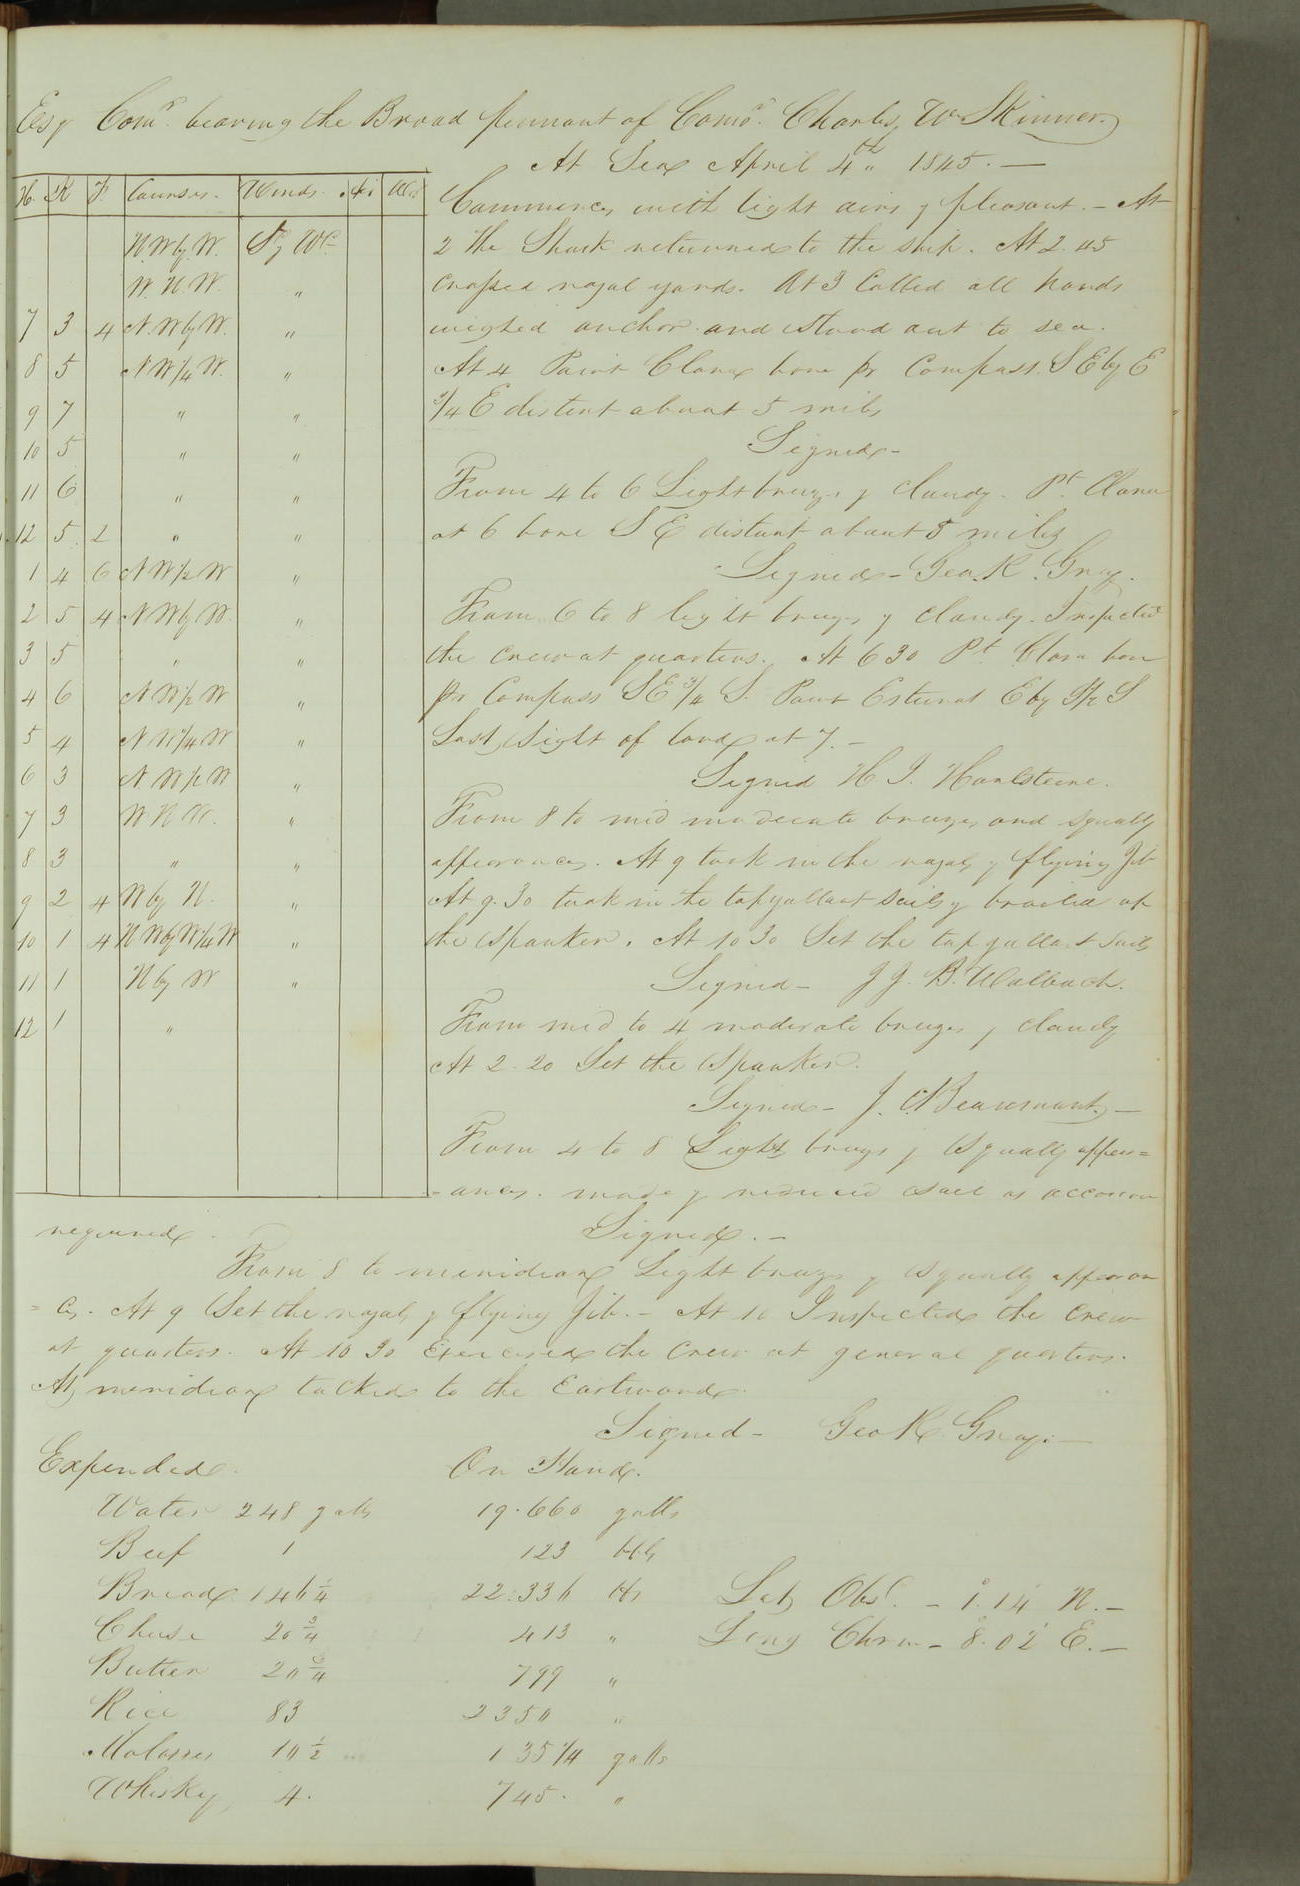 Esq Comr. bearing the Broad pennant of Como. Charles Wm Skinner.
At Sea April 4th 1845. —
H. K F. Courses. Winds.
N.W by W. S & Wd
W. N. W. "
7 3 4 N. W by W. "
8 5 N W 1/4 W. "
9 7 " "
10 5 " "
11 6 " "
12 5 2 " "
1 4 6 N W 1/2 W "
2 5 4 N W by W. "
3 5 " "
4 6 N W 1/2 W "
5 4 N W 1/4 W "
6 3 N. W 1/2 W "
7 3 W N W. "
8 3 " "
9 2 4 W by N. "
10 1 4 N W by W 1/4 W "
11 1 N by W "
12 1 "
Commences with light airs & pleasant. — At
2 the Shark returned to the ship. At 2.45
crossed royal yards. At 3 Called all hands
weighed anchor and stood out to sea.
At 4 Point Clara bore pr Compass. S E by E
3/4 E distant about 5 miles
Signed —
From 4 to 6 Light breezes & cloudy. Pt. Clara
at 6 bore S E distant about 5 miles
Signed — Geo. R. Gray.
From 6 to 8 light breezes & cloudy. Inspected
the crew at quarters. At 6 30 Pt Clara bore
pr Compass S E 3/4 S. Point Esteiras E by S 1/2 S
Lost sight of land at 7. —
Signed H J. Hartstene.
From 8 to mid moderate breezes and squally
appearances. At 9 took in the royals & flying Jib
At 9.30 took in the topgallant sails & brailed up
the spanker. At 10 30 Set the top gallant sails
Signed — J J. B. Walbach.
From mid to 4 moderate breezes & cloudy
At 2.20 Set the Spanker.
Signed — J. C. Beaumont. —
From 4 to 8 Light breezes & Squally appear=
-ances. made & reduced sail as occasion
required. Signed. —
From 8 to meridian Light breezes & squally appearan
= ces. At 9 Set the royals & flying Jib. — At 10 Inspected the crew
at quarters. At 10 30 Exercised the Crew at general quarters.
At meridian tacked to the Eastward.
Signed — Geo R Gray. —
Expended. On Hand.
Water 248 galls 19.660 galls
Beef 1 123 bbls
Bread 146 1/4 22.336 lbs Lat Obsd. — 1°.14' N. —
Cheese 20 3/4 413 " Long Chro. — 8°.02' E. —
Butter 20 3/4 799 "
Rice 83 2350 "
Molasses 10 1/2 135 1/4 galls
Whisky 4. 745. "